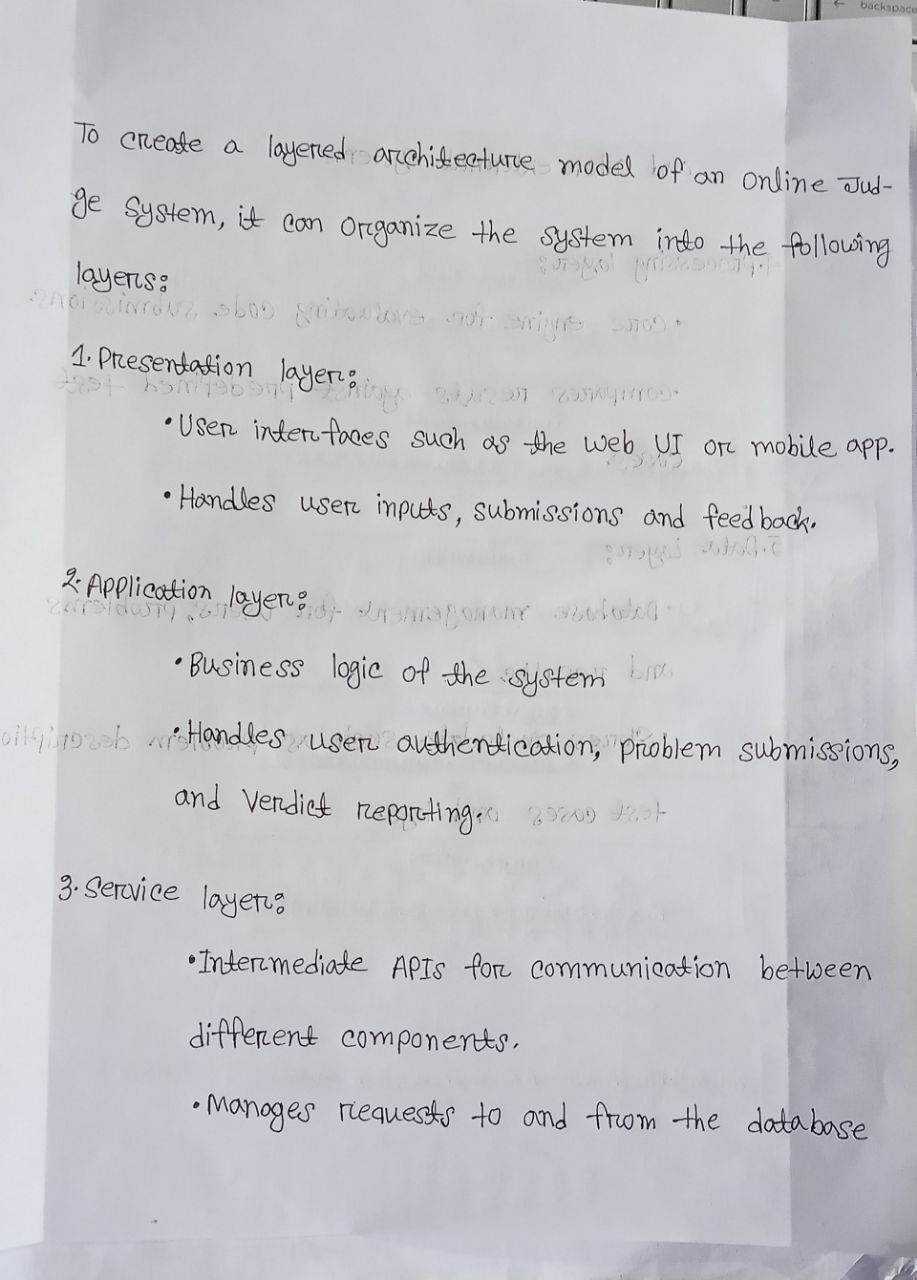 backspace
To create a layered architecture model of an online Jud-
ge System, it can organize the system into the following
layers:
1. Presentation layer:
• User interfaces such as the web UI or mobile app.
• Handles user inputs, submissions and feedback.
2. Application layer:
• Business logic of the system
• Handles user authentication, problem submissions,
and Verdict reporting.
3. Service layer:
• Intermediate APIs for communication between
different components.
• Manages requests to and from the database